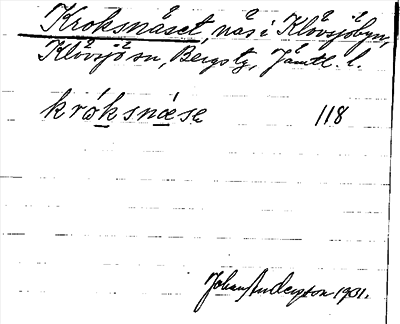 Kroksnäset, näs i Klövsjöbyn,
Klövsjö sn, Bergs tg, Jämtl. l.
króksnæse 118
Johan Anderson 1931.